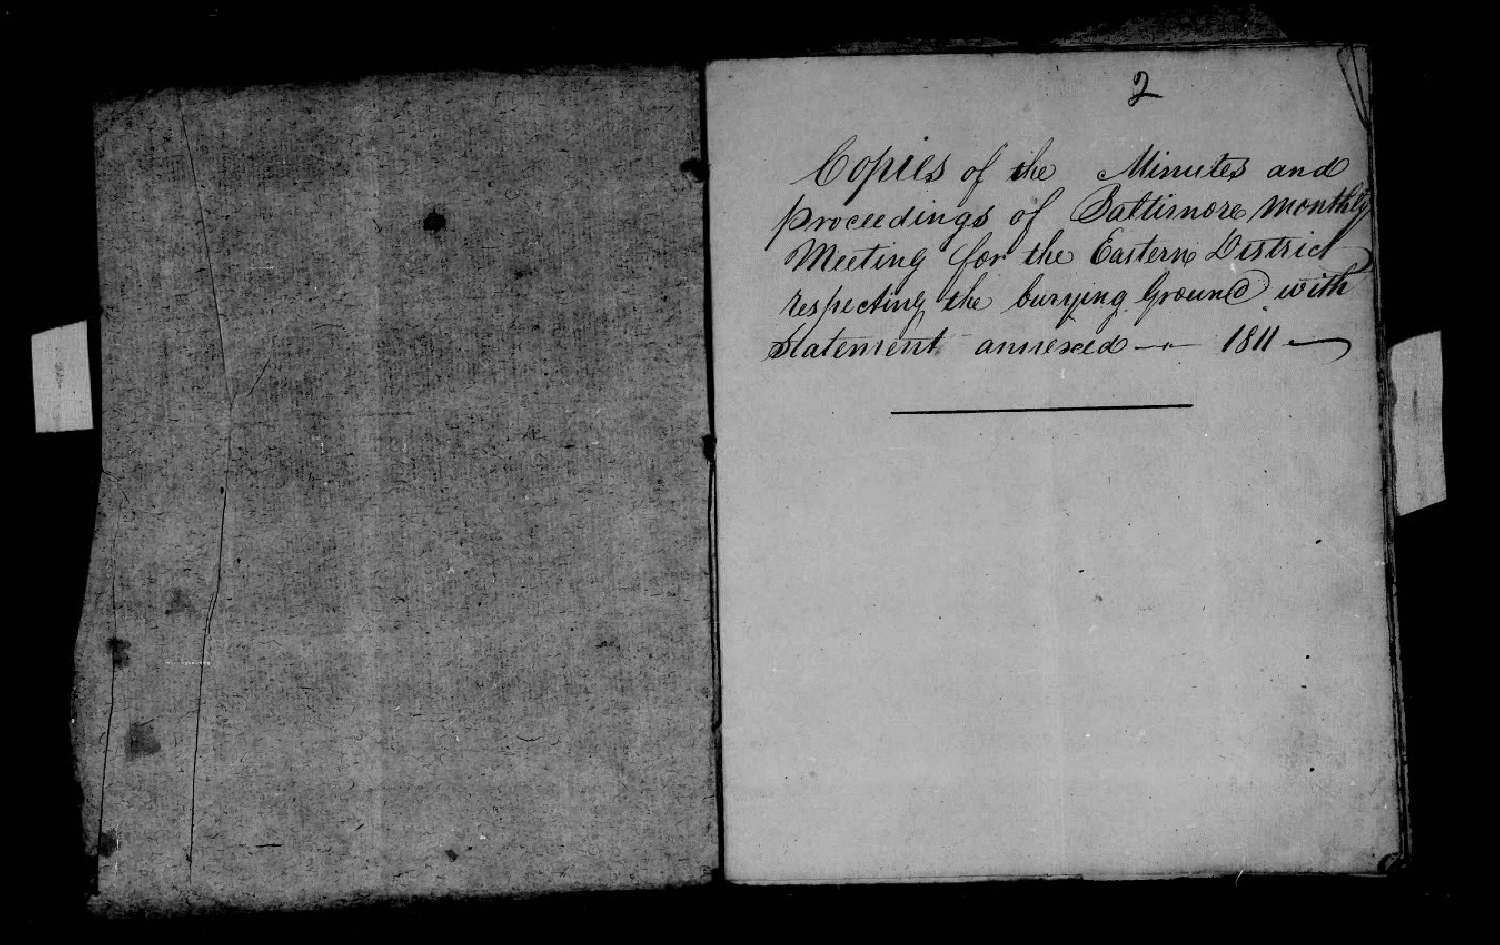 2
Copies of the Minutes and
proceedings of Baltimore monthly
Meeting for the Eastern District
respecting the burying Ground with
Statement annexed — 1811 —